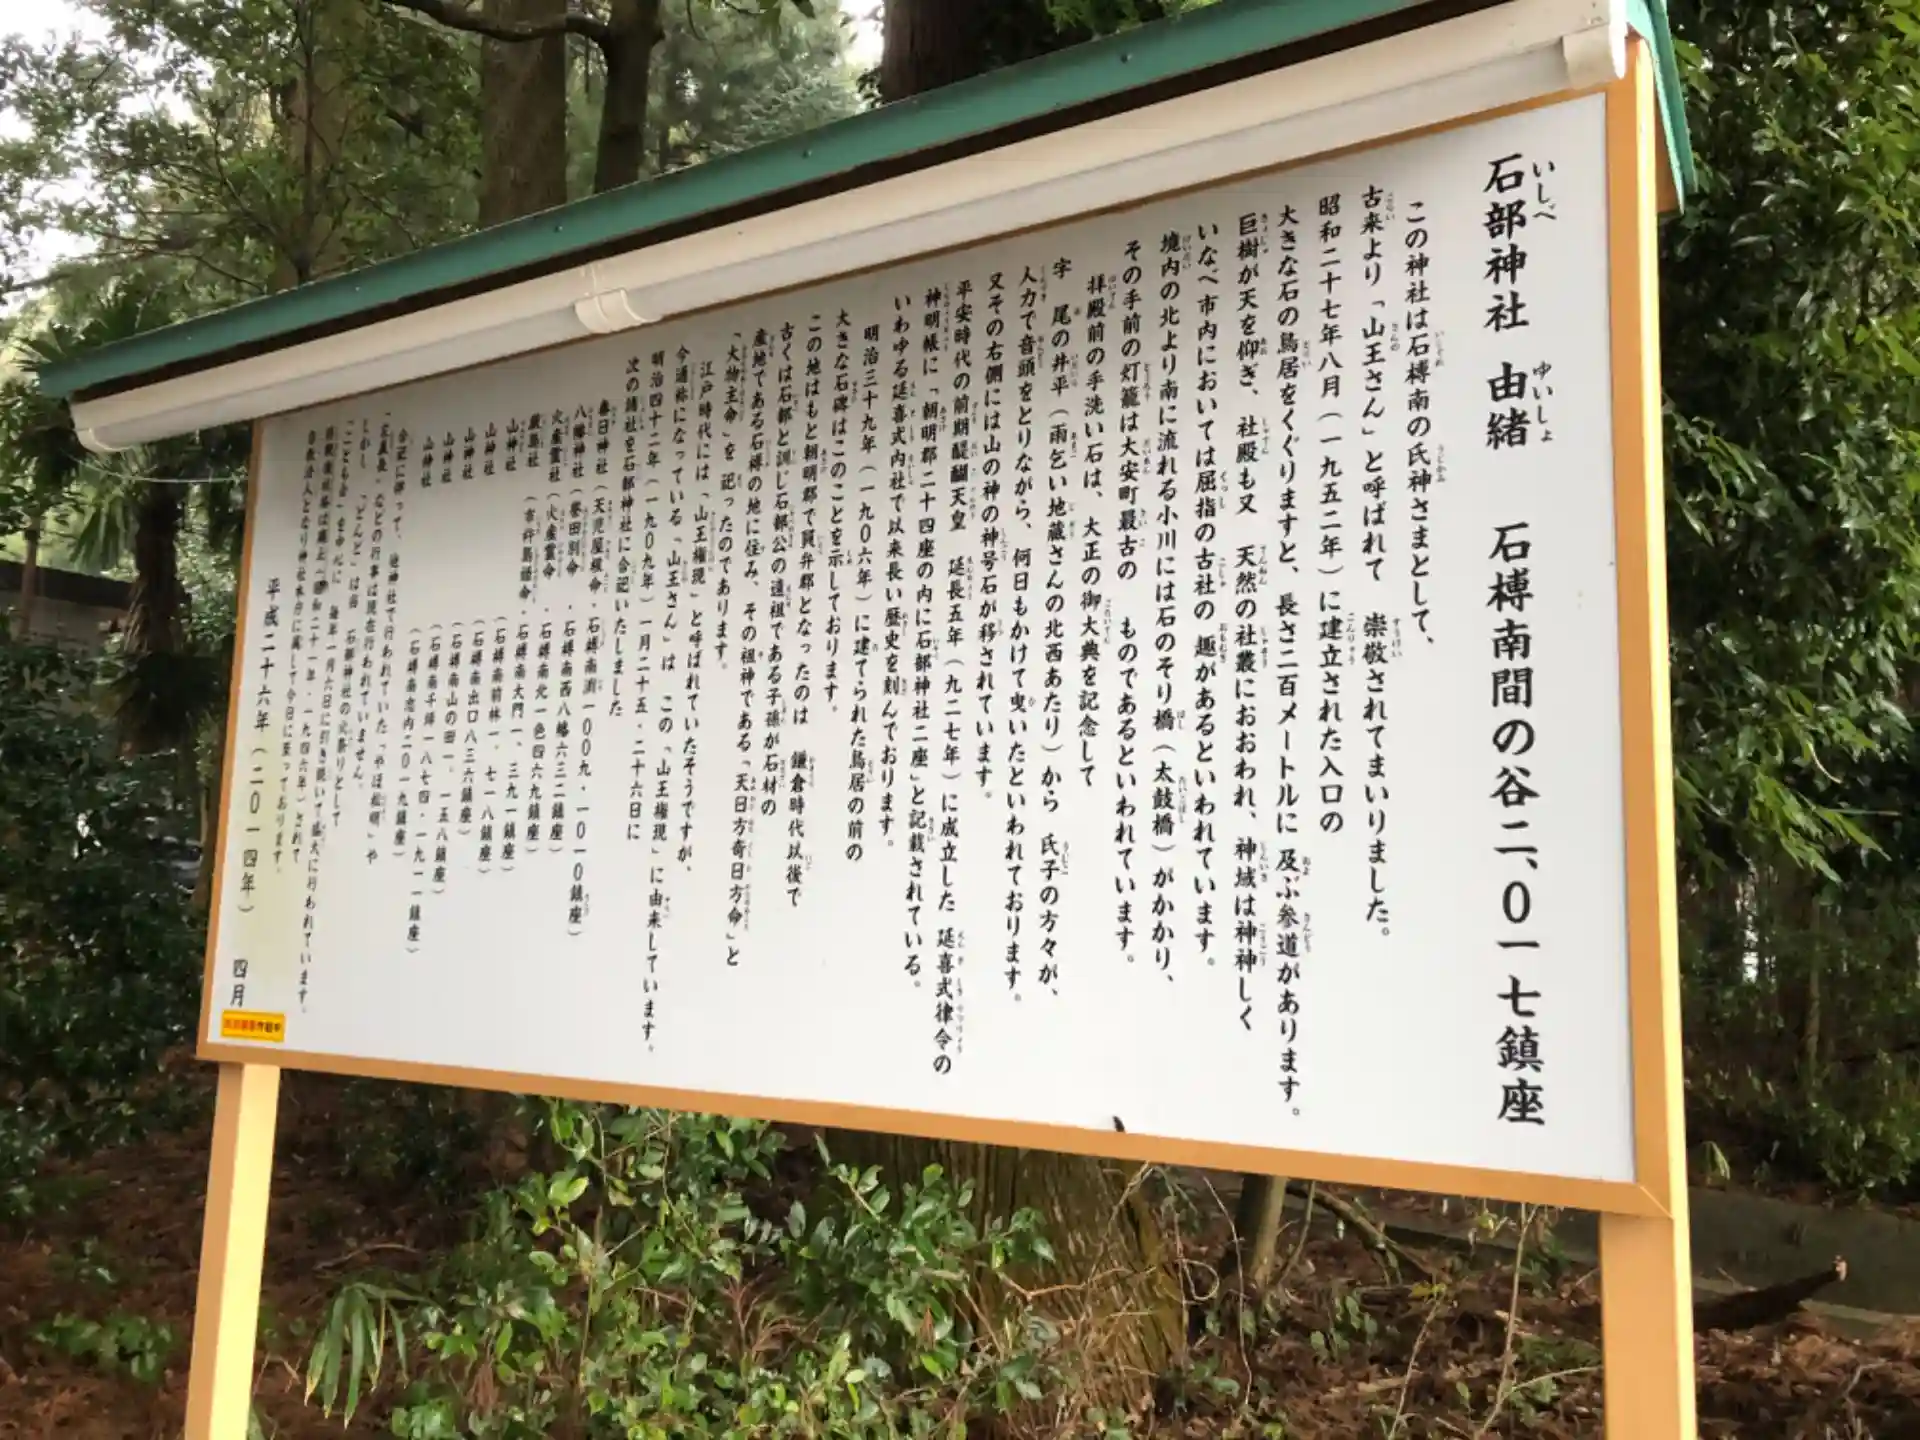 石部神社 由緒 石榑南間の谷二、0一七鎮座
この神社は石榑南の氏神さまとして、
古来より「山王さん」と呼ばれて 崇敬されてまいりました。
昭和二十七年八月(一九五二年)に建立された入口の
大きな石の鳥居をくぐりますと、長さ二百メートルに 及ぶ参道があります。
巨樹が天を仰ぎ、社殿も又 天然の社叢におおわれ、神域は神神しく
いなべ市内においては屈指の古社の 趣があるといわれています。
境内の北より南に流れる小川には石のそり橋(太鼓橋)がかかり、
その手前の灯籠は大安町最古の ものであるといわれています。
拝殿前の手洗い石は、大正の御大典を記念して
字 尾の井平(雨乞い地蔵さんの北西あたり)から 氏子の方々が、
人力で音頭をとりながら、何日もかけて曳いたといわれております。
又その右側には山の神の神号石が移されています。
平安時代の前期醍醐天皇 延長五年(九二七年)に成立した 延喜式律令の
神明帳に「朝明郡二十四座の内に石部神社二座」と記載されている。
いわゆる延喜式内社で以来長い歴史を刻んでおります。
明治三十九年(一九0六年)に建てられた鳥居の前の
大きな石碑はこのことを示しております。
この地はもと朝明郡で員弁郡となったのは 鎌倉時代以後で
古くは石部と訓じ石部公の遠祖である子孫が石材の
産地である石榑の地に住み、その祖神である「天日方奇日方命」と
「大物主命」を 祀ったのであります。
江戸時代には「山王権現」と呼ばれていたそうですが、
今通称になっている「山王さん」は この「山王権現」に由来しています。
明治四十二年(一九0九年)一月二十五・二十六日に
次の諸社を石部神社に合祀いたしました
春日神社(天児屋根命・石榑南渕一00九・一0一0鎮座)
八幡神社(誉田別命 ・石榑南西八幡六三二鎮座)
火産霊社(火産霊命 ・石榑南北一色四六九鎮座)
厳島社 (市杵島姫命・石榑南大門一、三九一鎮座)
山神社 (石榑南前林一、七一八鎮座)
山神社 (石榑南出口八三六鎮座)
山神社 (石榑南山の田一、一五八鎮座)
山神社 (石榑南千坪一八七四・一九一一鎮座)
山神社 (石榑南池内二0一九鎮座)
合祀に伴って、他神社で行われていた「やほ松明」や
などの行事は現在行われていません。
しかし「どんど」は当 石部神社の火祭りとして
こども会を中心に 毎年一月六日に引き続いて盛大に行われています。
昭和二十一年・一九四六年)されて
法人となり神社本庁に属して今日に至っております。
平成二十六年(二0一四年) 四月